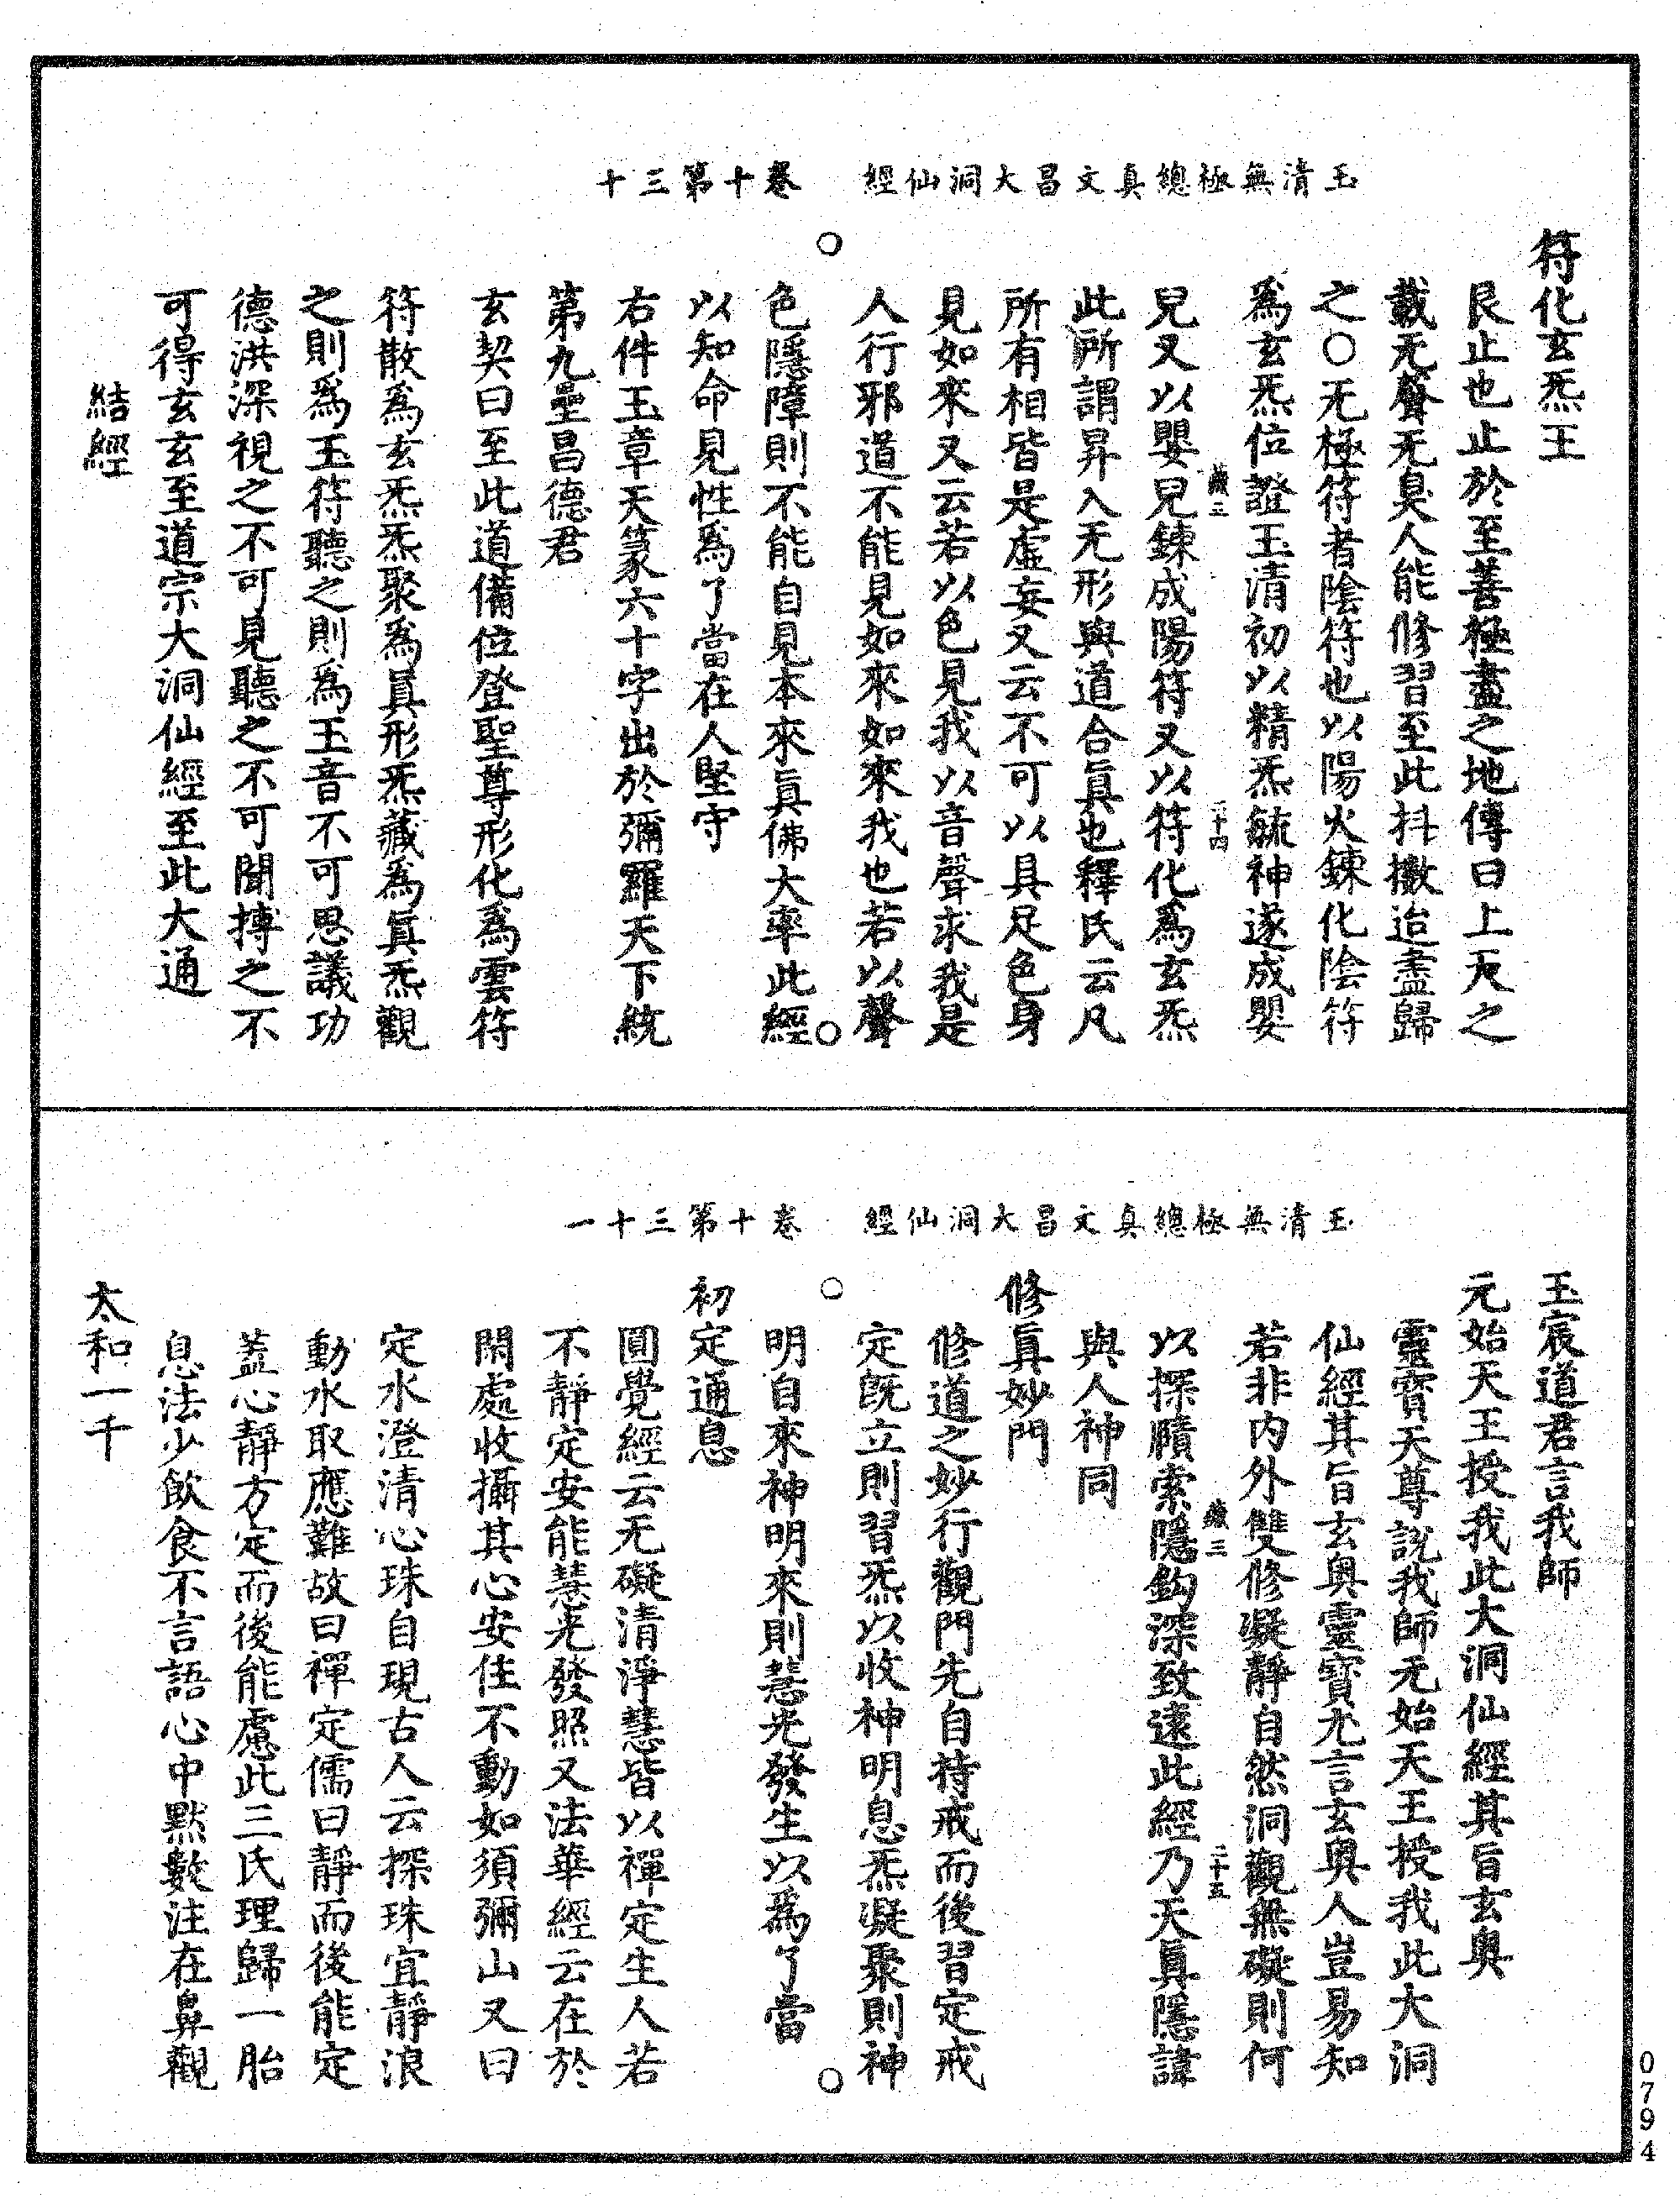 玉清無極總真文昌大洞仙經　卷十第三十
符化玄炁王
艮止也止於至善極盡之地傳曰上天之
載无聲无臭人能修習至此抖擻迨盡歸
之○无極符者陰符也以陽火鍊化陰符
爲玄炁位證玉清初以精炁毓神遂成嬰
藏三　二十四
兒又以嬰兒鍊成陽符又以符化爲玄炁
此所謂昇入无形與道合眞也釋氏云凡
所有相皆是虛妄又云不可以具足色身
見如來又云若以色見我以音聲求我是
人行邪道不能見如來如來我也若以聲
色隱障則不能自見本來眞佛大率此經
以知命見性爲了當在人堅守
右件玉章天篆六十字出於彌羅天下統
第九壘昌德君
玄契曰至此道備位登聖尊形化爲雲符
符散爲玄炁炁聚爲眞形炁藏爲眞炁觀
之則爲玉符聽之則爲玉音不可思議功
德洪深視之不可見聽之不可聞摶之不
可得玄玄至道宗大洞仙經至此大通
結經
玉清無極總真文昌大洞仙經　卷十第三十一
玉宸道君言我師
元始天王授我此大洞仙經其旨玄奧
靈寶天尊說我師元始天王授我此大洞
仙經其旨玄奧靈寶尤言玄奧人豈易知
若非内外雙修凝靜自然洞觀無礙則何
藏三　二十五
以探賾索隱鈎深致遠此經乃天眞隱諱
與人神同
修眞妙門
修道之妙行觀門先自持戒而後習定戒
定旣立則習炁以收神明息炁凝聚則神
明自來神明來則慧光發生以爲了當
初定通息
圓覺經云无礙清淨慧皆以禪定生人若
不靜定安能慧光發照又法華經云在於
閑處收攝其心安住不動如須彌山又曰
定水澄清心珠自現古人云探珠宜靜浪
動水取應難故曰禪定儒曰靜而後能定
蓋心靜方定而後能慮此三氏理歸一胎
息法少飲食不言語心中默數注在鼻觀
太和一千
0794